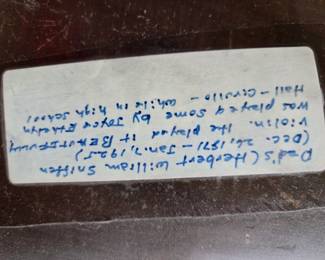 Dad's (Herbert William Sniffen
(Dec. 26, 1871 - Jan. 7, 1925)
Violin. He played it BEAUTIFULLY
was played some by Joyce Ethelyn
Hall - Cirullo - while in high school